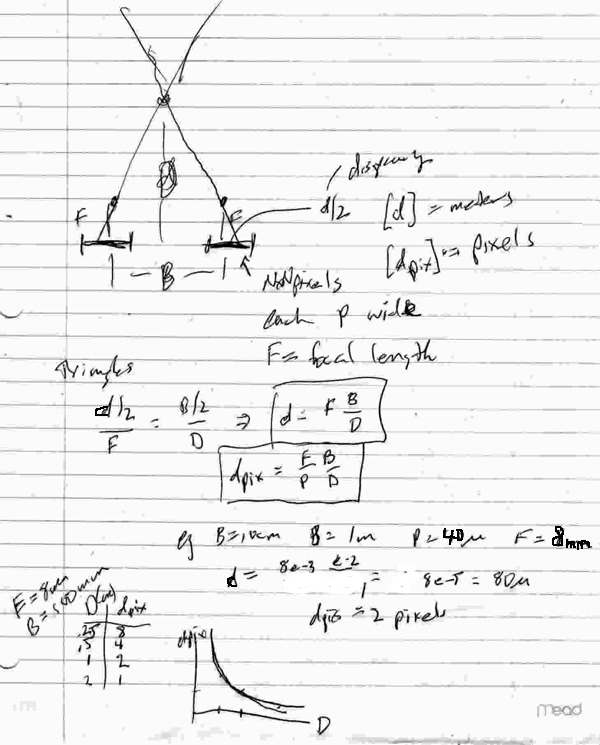 disparity
F F d/2 [d] = meters
[dpix] = pixels
B NxN pixels
each P wide
F = focal length
Triangles
d/2 / F = B/2 / D ⇒ d = F B/D
dpix = F/P B/D
eg B=10cm B= 1m P=40μ F=8mm
d = 8e-3 E-2 / 1 = 8e-5 = 80μ
dpix = 2 pixels
F=8mm
B=100mm
D(m) dpix
.25 8
.5 4
1 2
2 1
dpix
D
mead